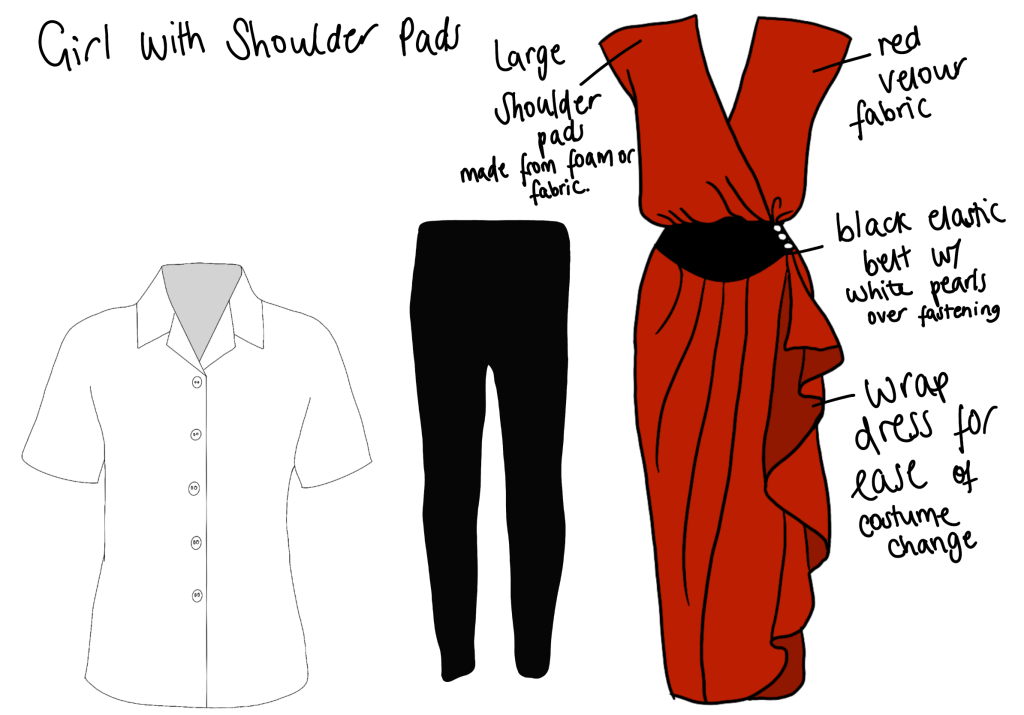 Girl with Shoulder Pads
Large
Shoulder
pads
made from foam or
fabric.
red
velour
fabric
black elastic
belt w/
white pearls
over fastening
wrap
dress for
ease of
costume
change